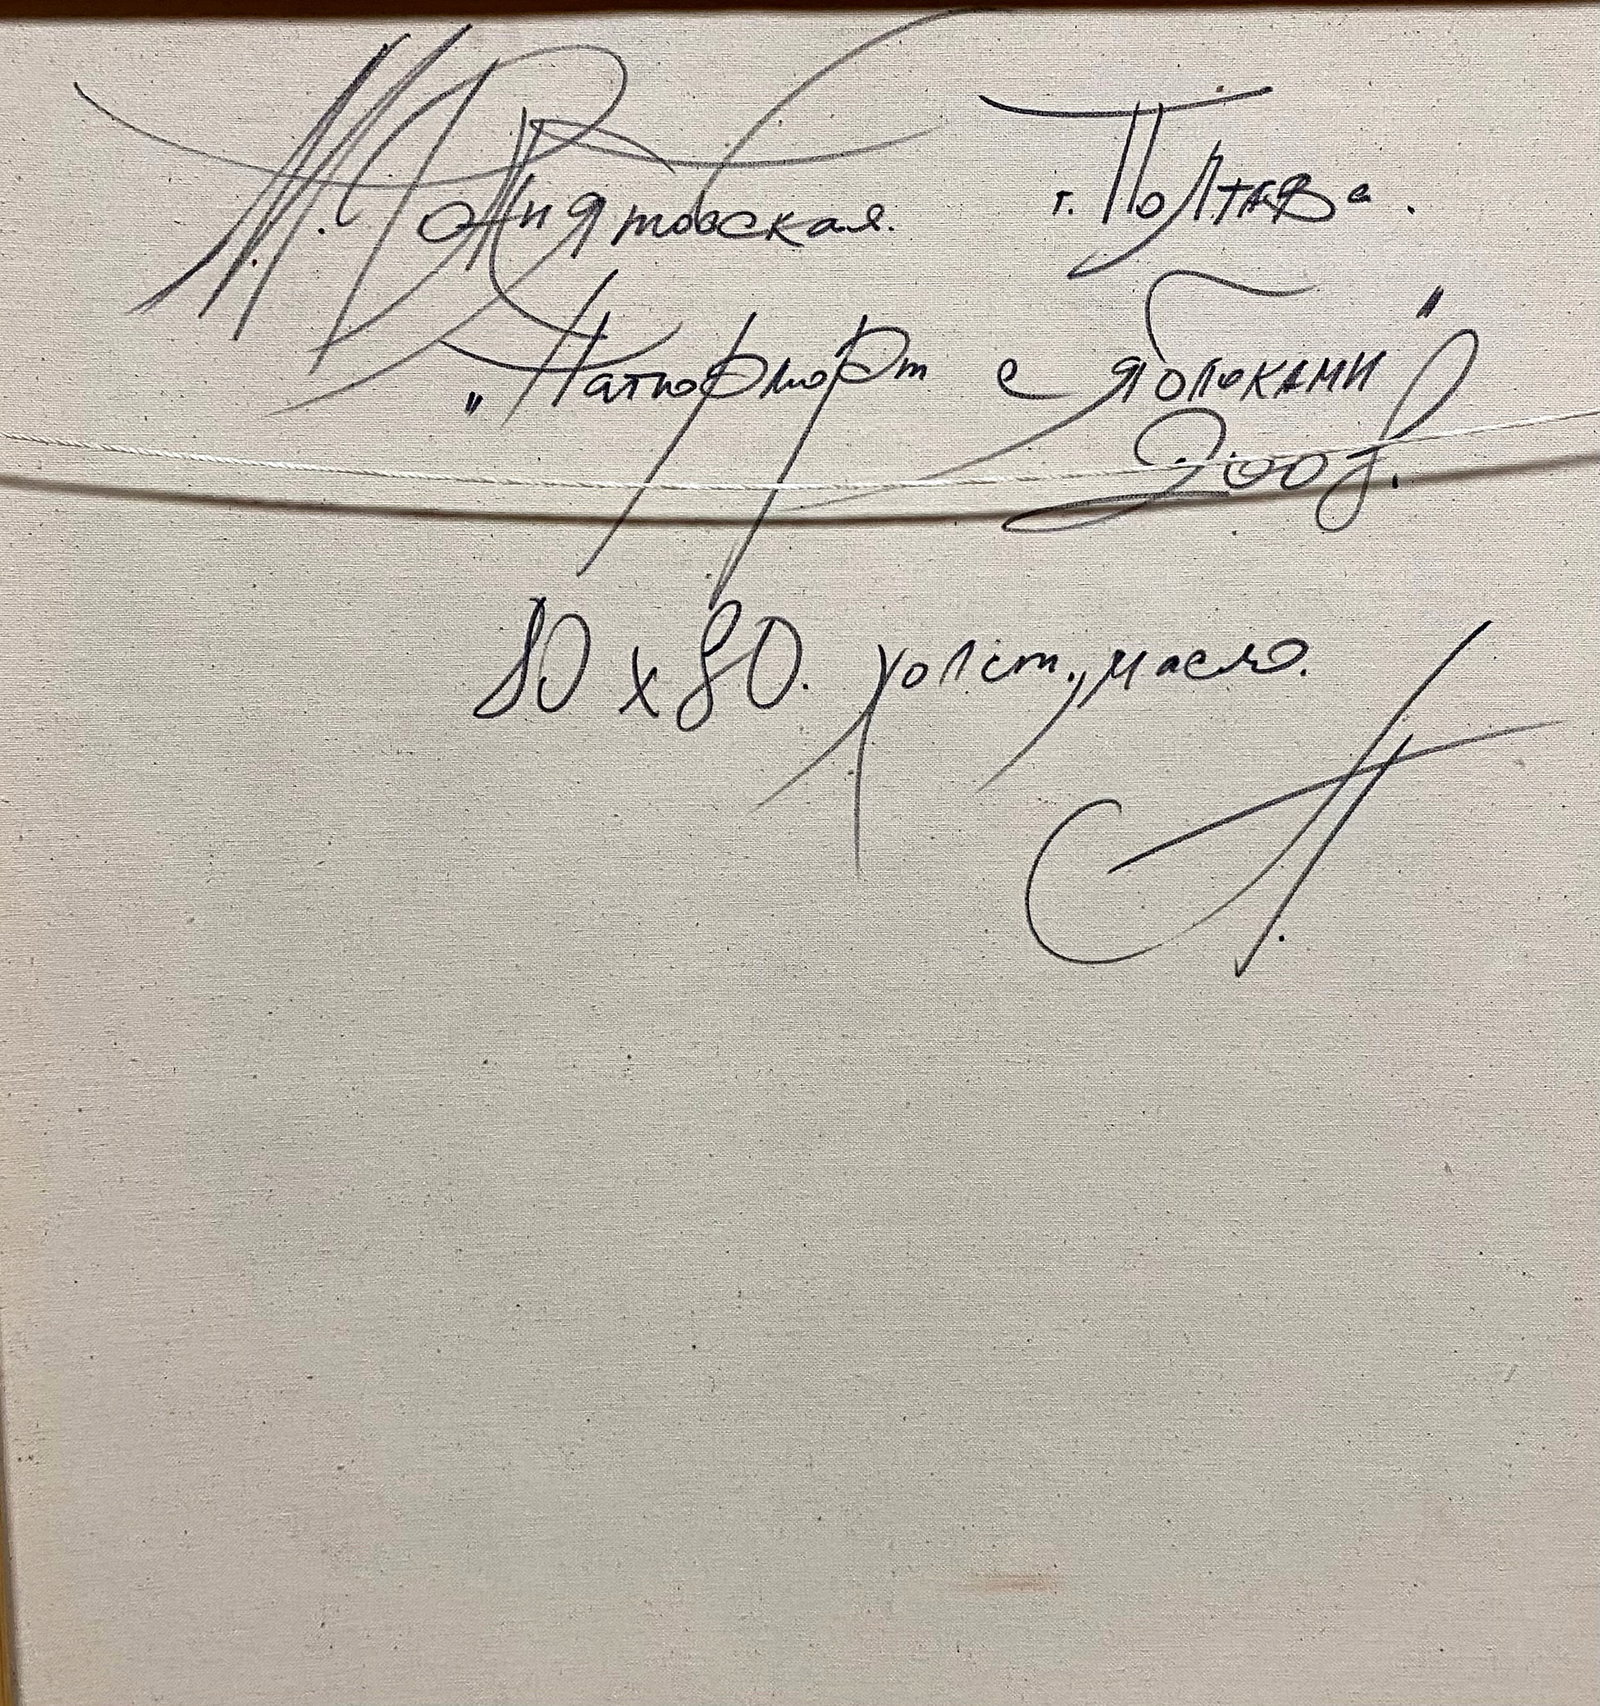 М. Понятовская. г. Полтава.
"Натюрморт с яблоками"
2008.
80 х 80. холст, масло.